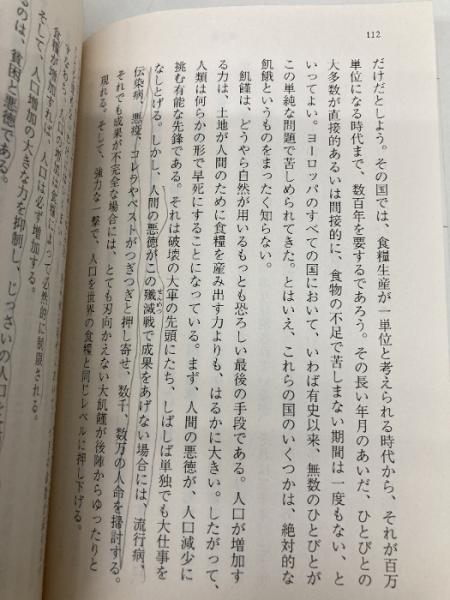 112
だけだとしよう。その国では、食糧生産が一単位と考えられる時代から、それが百万
単位になる時代まで、数百年を要するであろう。その長い年月のあいだ、ひとびとの
大多数が直接的あるいは間接的に、食物の不足で苦しまない期間は一度もない、と
いってよい。ヨーロッパのすべての国において、いわば有史以来、無数のひとびとが
この単純な問題で苦しめられてきた。とはいえ、これらの国のいくつかは、絶対的な
飢餓というものをまったく知らない。
飢饉は、どうやら自然が用いるもっとも恐ろしい最後の手段である。人口が増加す
る力は、土地が人間のために食糧を産み出す力よりも、はるかに大きい。したがって、
人類は何らかの形で早死にすることになっている。まず、人間の悪徳が、人口減少に
挑む有能な先鋒である。それは破壊の大軍の先頭にたち、しばしば単独でも大仕事を
なしとげる。しかし、人間の悪徳がこの殲滅戦で成果をあげない場合には、流行病、
せんめつ
伝染病、悪疫、コレラやペストがつぎつぎと押し寄せ、数千、数万の人命を掃討する。
それでも成果が不完全な場合には、とても刃向かえない大飢饉が後陣からゆったりと
現れる。そして、強力な一撃で、人口を世界の食糧と同じレベルに押し下げる。
によって必然的に制限される。
食糧が増加すれば、人口は必ず増加する。
そして、人口増加の大きな力を抑制し、じっさいの人口を
のは、貧困と悪徳である。